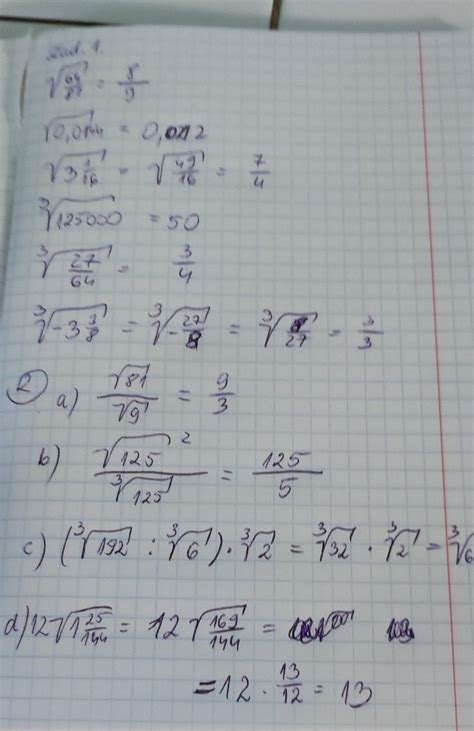 Zad. 1.
√(64/81) = 8/9
√0,0144 = 0,012
√(3 1/16) = √(49/16) = 7/4
∛125000 = 50
∛(27/64) = 3/4
∛(-3 3/8) = ∛(-27/8) = ∛(8/27) = /3
2 a) √81/√9 = 9/3
b) √125²/∛125 = 125/5
c) (∛192 : ∛6) · ∛2 = ∛32 · ∛2 = ∛6
d) 12√(1 25/144) = 12√(169/144) =
= 12 · 13/12 = 13